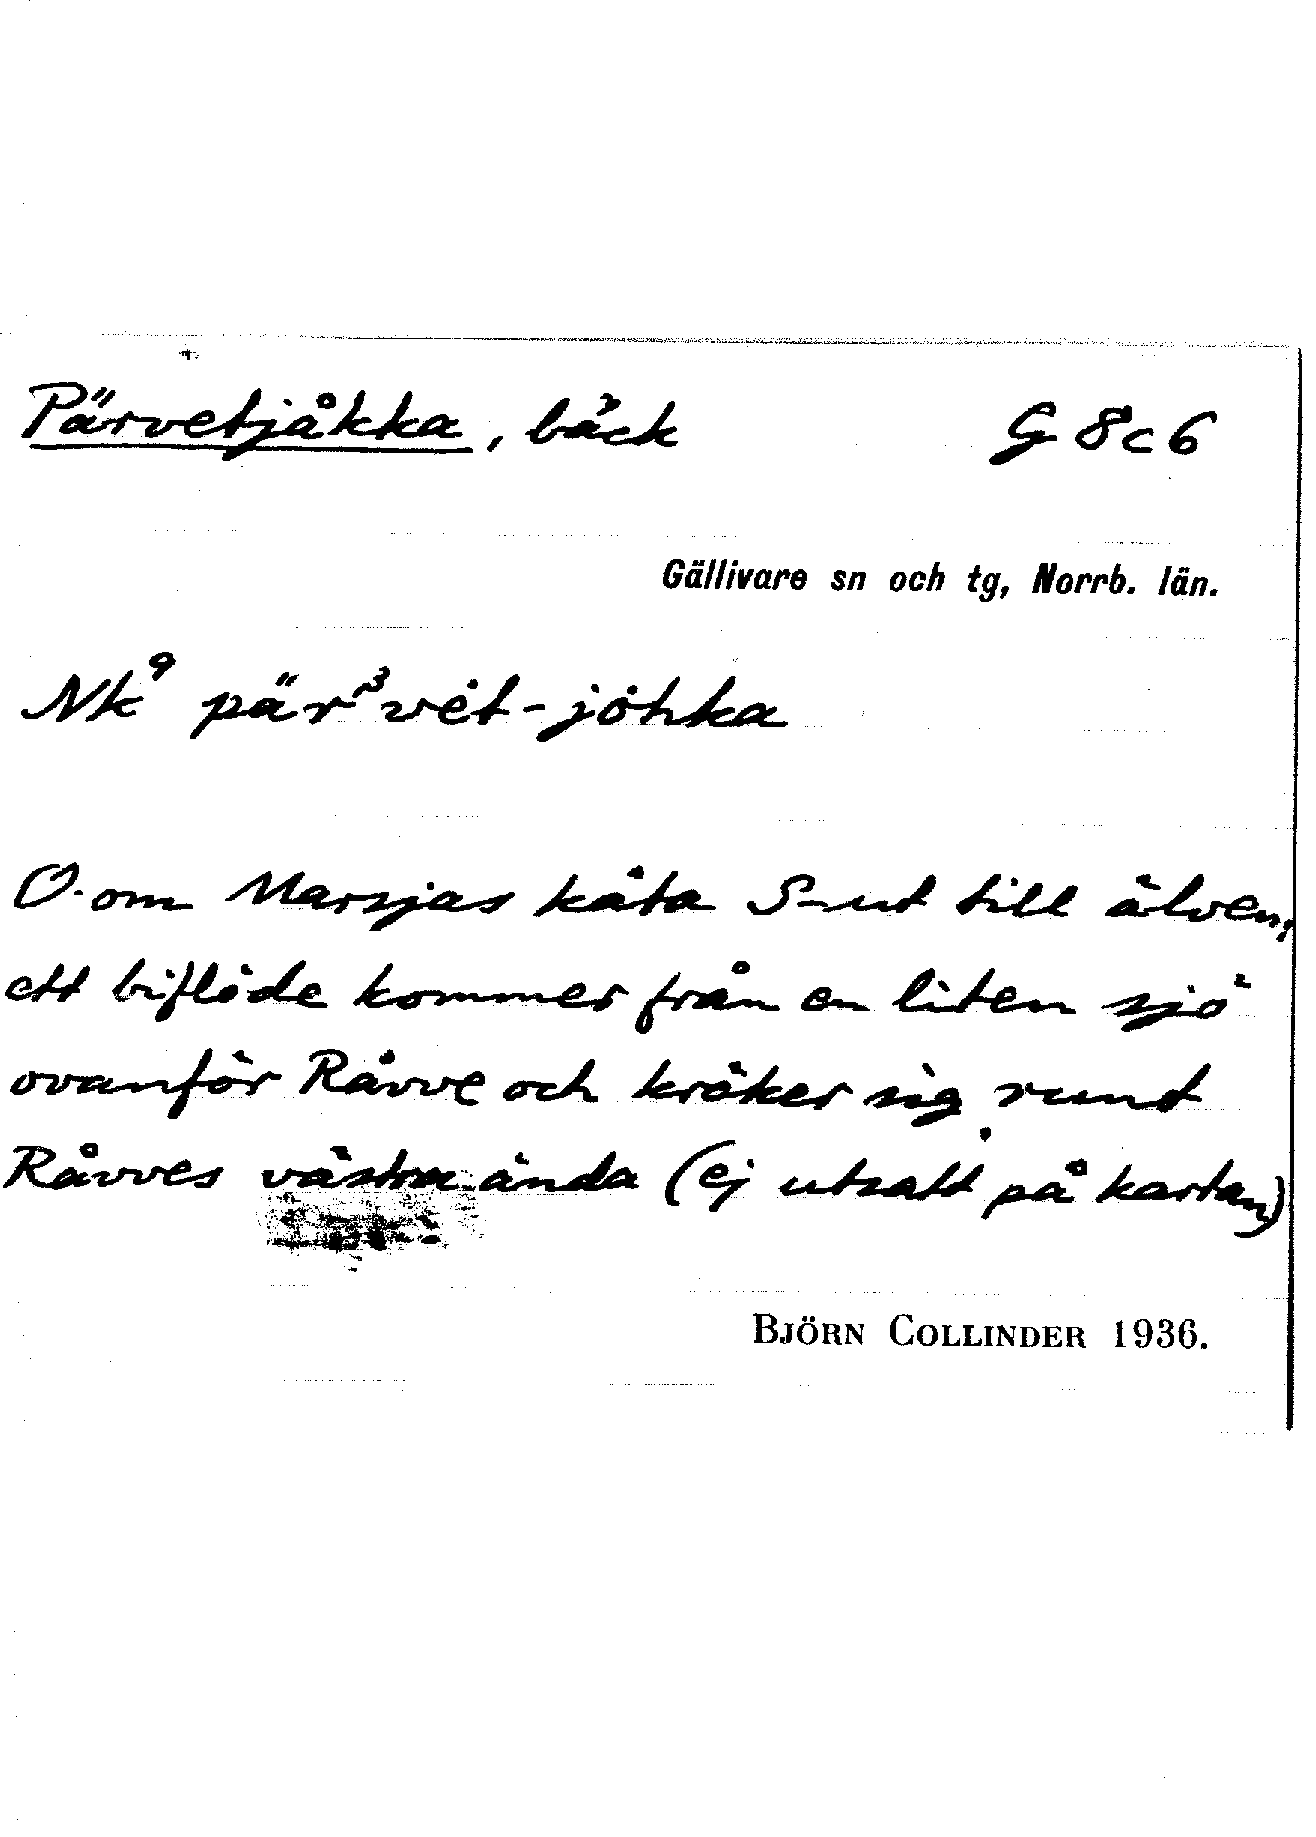 Pärvetjåkka, bäck G 8 c 6
Gällivare sn och tg, Norrb. län.
Nk⁹ pär³vėt-jȯhka
O-om Marsjas kåta S-ut till älven;
ett biflöde kommer från en liten sjö
ovanför Råvve och kröker sig runt
Råvves västra ända (ej utsatt på kartan)
BJÖRN COLLINDER 1936.